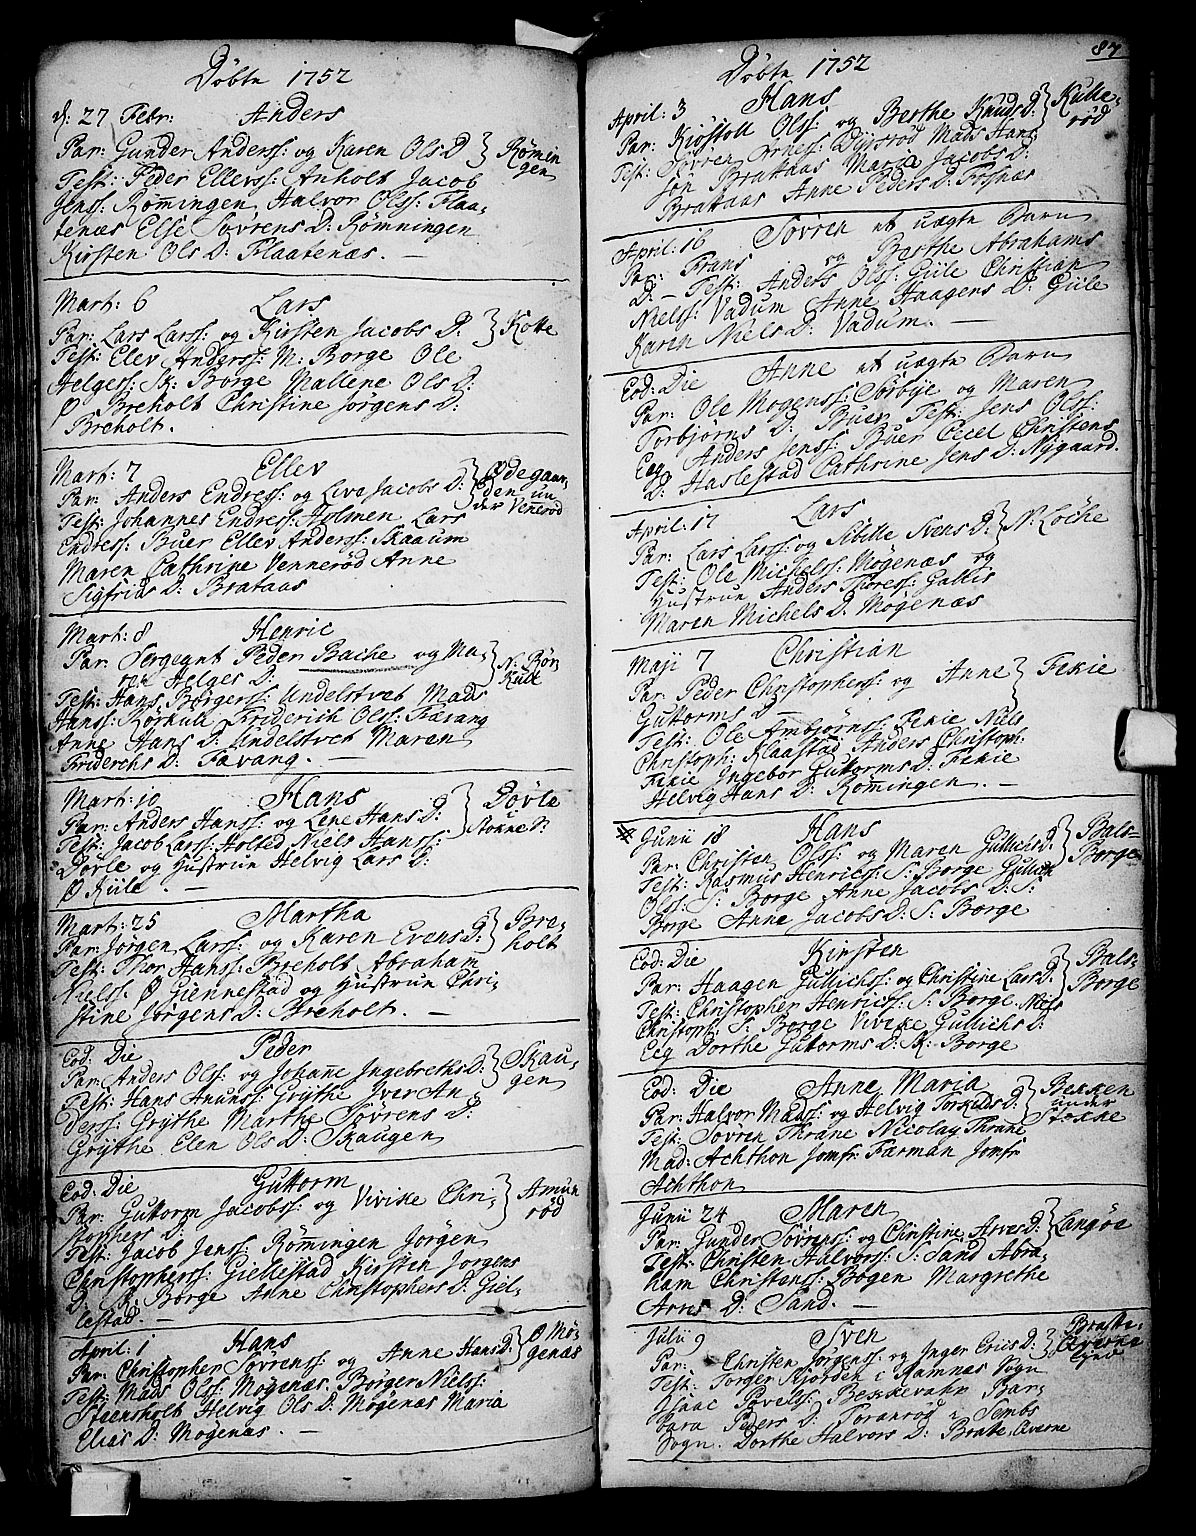 Döbte 1752
d: 27 Febr: Anders
Par: Gunder Anderss: og Karen Ols D } Römin
gen
Test: Peder Ellevss: Anholt Jacob
Jenss: Römingen Halvor Olss: Flaa-
tenæs Else Sövrens D: Römningen
Kirsten Ols D: Flaatenæs. —
Mart: 6 Lars
Par: Lars Larss: og Kirsten Jacobs D: } Kotte
Test: Elev Anderss: M: Borge Ole
Helgess: K: Borge Mallene Ols D:
Ø Breholt Christine Jörgens D:
Breholt.
Mart: 7 Ellev
Par: Anders Endress: og Live Jacobs D: } Ødegaar
den un
der Vennerød
Test: Johannes Endress: Holmen Lars
Endress: Buer Ellev Anderss: Skaaum
Maren Cathrine Vennerød Anne
Sigfrids D: Brataas
Mart: 8 Henric
Par: Sergeant Peder Bache og Ma- } N: Rör
Kull
ren Helges D:
Test: Hans Börgerss: Undelstvet Mads
Hanss: Rörkull Friderich Olss: Færang
Anne Hans D: Undelstvet Maren
Friderchs D: Favang. —
Mart: 10 Hans
Par: Anders Hanss: og Lene Hans D: } Dövle
Stokne P:
Test: Jacob Larss: Holted Niels Hanss:
Dövle og Hustrue Helvig Lars D:
Ø Kiile. —
Mart: 25 Martha
Par: Jörgen Larss: og Karen Evens D: } Bre-
holt
Test: Thor Hanss: Breholt Abraham
Nielss. Ø Giennestad og Hustrue Chri-
stine Jörgens D: Breholt. —
Eod: Die Peder
Par: Anders Olss: og Johane Ingebreths D: } Skau-
gen
Test: Hans Anunss: Grythe Iver An
derss: Grythe Marthe Sövrens D:
Grythe Elen Ols D: Skaugen
Eod: Die Guttorm
Par: Guttorm Jacobss: og Vivike Chri- } Amun
röd
stophers D:
Test: Jacob Jenss: Römingen Jörgen
Christopherss: Giellestad Kirsten Jörgens
D: K: Borge Anne Christophers D: Giel-
lestad. —
April: 1 Hans
Par: Christopher Sövrenss: og Anne Hans D: } Ø Mö-
genæs
Test: Mads Olss: Mögenæs Börger Nielss:
Steensholt Helvig Ols D: Mögenæs Maria
Elias D: Mogenæs. —
87
Döbte 1752
April: 3 Hans
Par: Kiöstoll Olss: og Berthe Knuds D: } Kulle-
röd
Test: Sövren Arness: Dyrsröd Mads Hans
Sön Brattaas Maria Jacobs D:
Brattaas Anne Peders D: Fossnæs
April: 16 Sövren et uægte Barn
Par: Frans og Berthe Abrahams
D: — Test: Anders Olss: Giile Christian
Nielss: Vadum Anne Haagens D: Giile
Karen Niels D: Vadum. —
Eod: Die Anne et uægte Barn
Par: Ole Mogenss: Sörbye og Maren
Torbjörns D: Buer Test: Jens Olss:
Eeg Anders Jenss: Buer Cecel Christens
D: Haslestad Cathrine Jens D: Nygaard.
April: 17 Lars
Par: Lars Larss: og Sibille Svens D: } N: Löche
Test: Ole Michelss: Mögenæs og
Hustrue Anders Thoress: Gallis
Maren Michels D: Mögenæs
Maji 7 Christian
Par: Peder Christopherss: og Anne } Fekie
Guttorms D: —
Test: Ole Ambjörnss: Fekie Niels
Christoph: Klaastad Anders Christoph:
Fekie Ingebor Guttorms D: Fekie
Helvig Hans D: Romingen. —
Junii 18 Hans
Par: Christen Olss: og Maren Gullichs D: } Bals-
Borge
Test: Rasmus Henricss: S: Borge Gullich
Olss: S: Borge Anne Jacobs D: S:
Borge Anne Jacobs D: S: Borge
Eod: Die Kirsten
Par: Haagen Gullichss: og Christine Lars D: } Bals-
Borge
Test: Christopher Henricss: S: Borge Niels
Christoph: S: Borge Vivike Gullichs D:
Eeg Dorthe Guttorms D: K: Borge
Eod: Die Anne Maria
Par: Halvor Madss: og Helvig Torkilds D: } Bekken
under
Stokne
Test: Sövren Thrane Nicolay Thrane
Mad: Achthon Jomfr: Farman Jomfr:
Achthon
Junii 24 Maren
Par: Gunder Sövrenss: og Christine Arvers D: } Langöe
Test: Christen Halvorss: S: Sand Abra-
ham Christenss: Bögen Margrethe
Arns D: Sand. —
Julii 9 Sven
Par: Christen Jörgenss: og Inger Erics D: } Bratte-
Test: Torger Fjordeh i Ramnæs Sogn
Isaac Povelss: Bekkevahr Bar-
bara Peders D: Toranröd i Sembs
Sogn. Dorthe Halvors D: Bratte Qverne